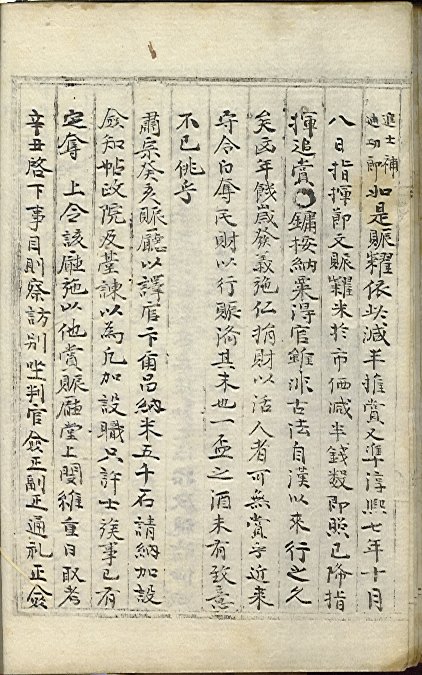 進士補
迪功郎
如是賑糶依此減半推賞又準淳熙七年十月
八日指揮節文賑糶米於市価減半錢数即照已降指
揮追賞○鏞按納粟得官雖非古法自漢以來行之久
矣凶年餓歲發義施仁捐財以活人者可無賞乎近來
守令白奪民財以行賑濟其末也一盃之酒未有致意
不已佻乎
肅宗癸亥賑廳以譯官卞甫呂納米五千石請納加設
僉知帖政院及臺諫以為凡加設職只許士族事已有
定奪 上令該廳施以他賞賑廳堂上閔維重曰取考
辛丑啓下事目則察訪別坐判官僉正副正通礼正僉